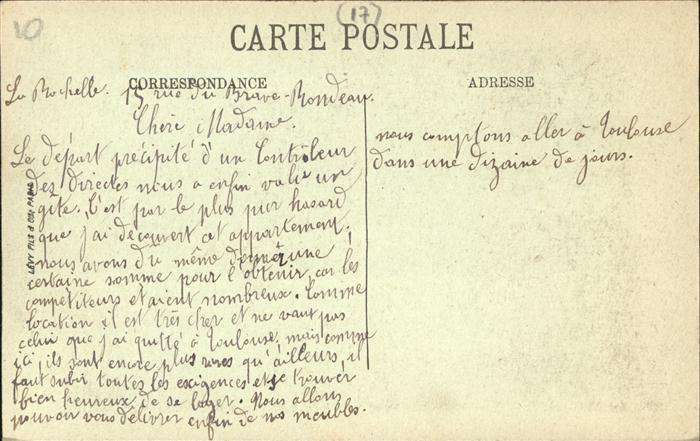 10
(17)
CARTE POSTALE
CORRESPONDANCE
ADRESSE
La Rochelle. 15 rue du Brave-Rondeau.
Chère Madame.
Le départ précipité d'un Contrôleur
des directes nous a enfin valu un
gîte. C'est par le plus pur hasard
que j'ai découvert cet appartement,
nous avons dû même donner une
certaine somme pour l'obtenir, car les
compétiteurs étaient nombreux. Comme
location il est très cher et ne vaut pas
celui que j'ai quitté à Toulouse, mais comme
ici, ils sont encore plus rares qu'ailleurs, il
faut subir toutes les exigences et se trouver
bien heureux de se loger. Nous allons
pouvoir vous délivrer enfin de nos meubles.
nous comptons aller à Toulouse
dans une dizaine de jours.
LÉVY FILS & CIE, PARIS